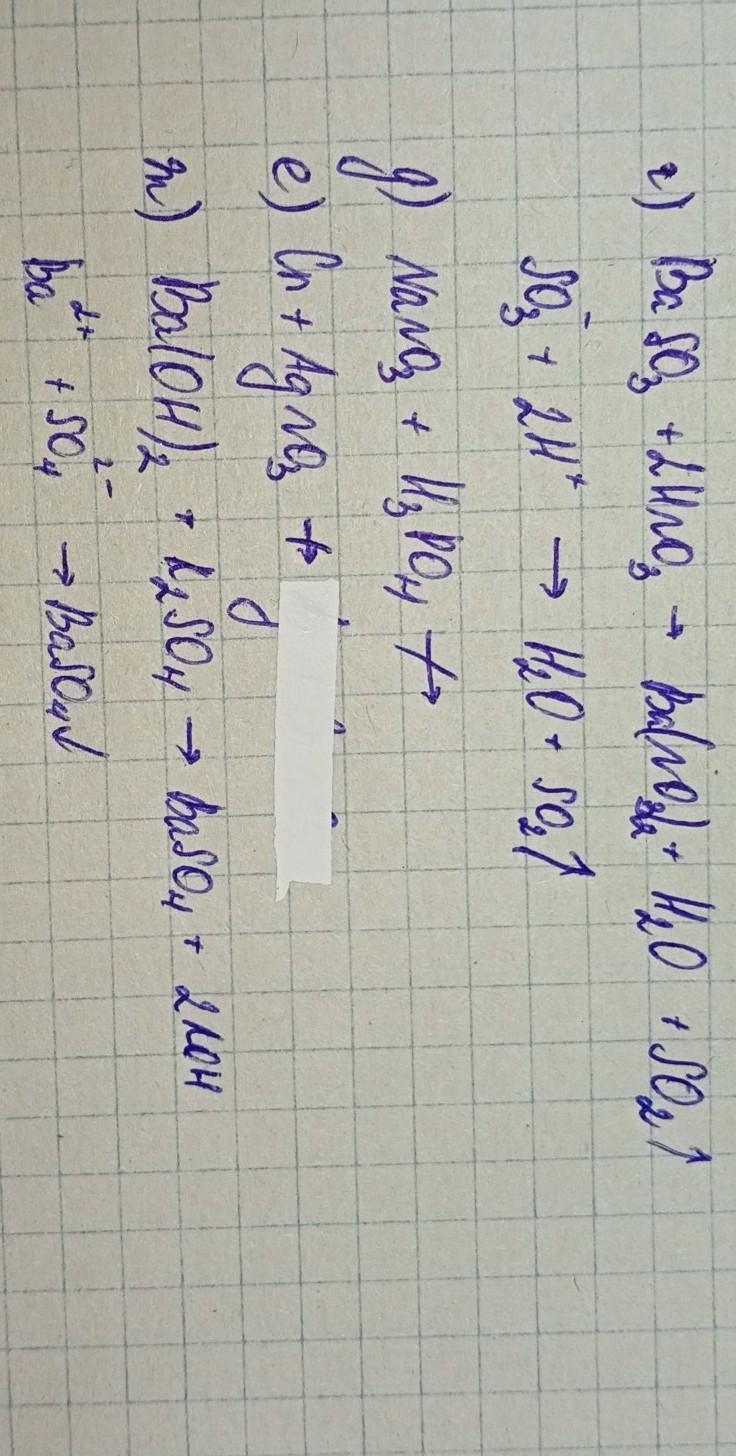 г) BaSO₃ + 2HNO₃ → Ba(NO₃)₂ + H₂O + SO₂↑
SO₃⁻ + 2H⁺ → H₂O + SO₂↑
д) NaNO₃ + H₃PO₄ ↛
е) Cu + AgNO₃ ↛
ж) Ba(OH)₂ + K₂SO₄ → BaSO₄ + 2KOH
Ba²⁺ + SO₄²⁻ → BaSO₄↓